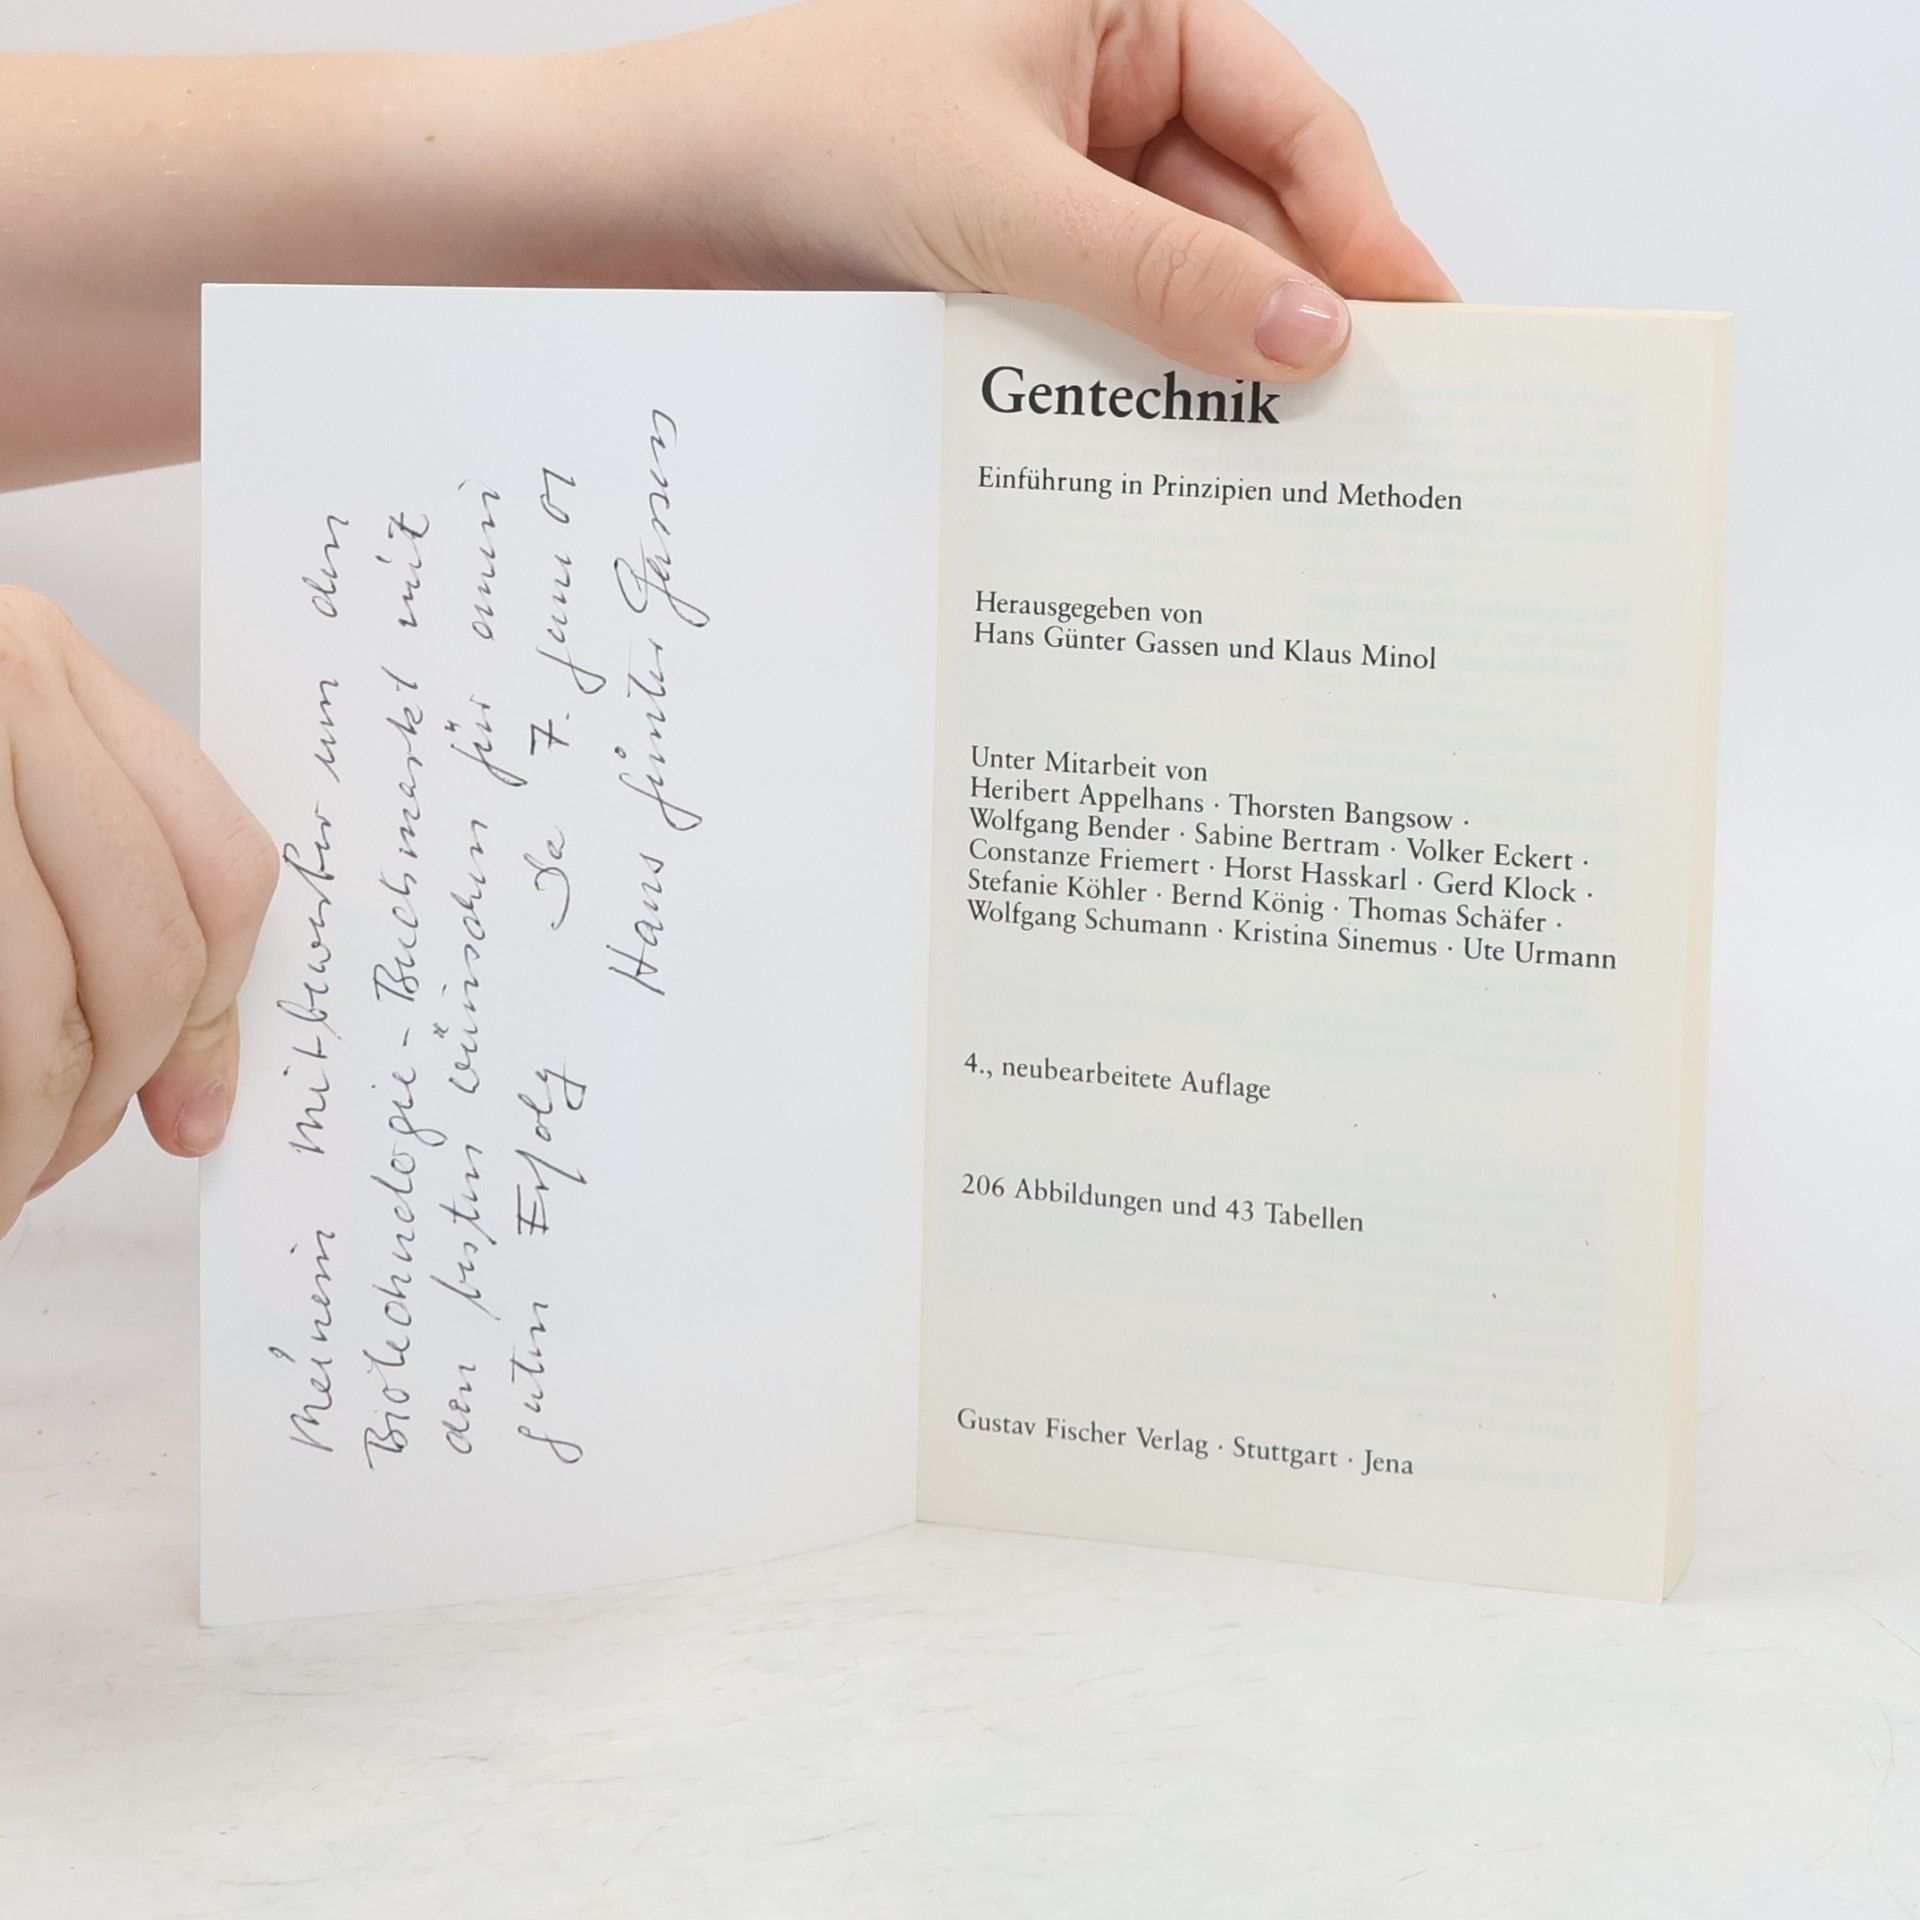 Meinem Mitbewerber um den
Biotechnologie-Buchmarkt mit
den besten Wünschen für einen
guten Erfolg Da 7. Juni 01
Hans Günter Gassen
Gentechnik
Einführung in Prinzipien und Methoden
Herausgegeben von
Hans Günter Gassen und Klaus Minol
Unter Mitarbeit von
Heribert Appelhans · Thorsten Bangsow ·
Wolfgang Bender · Sabine Bertram · Volker Eckert ·
Constanze Friemert · Horst Hasskarl · Gerd Klock ·
Stefanie Köhler · Bernd König · Thomas Schäfer ·
Wolfgang Schumann · Kristina Sinemus · Ute Urmann
4., neubearbeitete Auflage
206 Abbildungen und 43 Tabellen
Gustav Fischer Verlag · Stuttgart · Jena